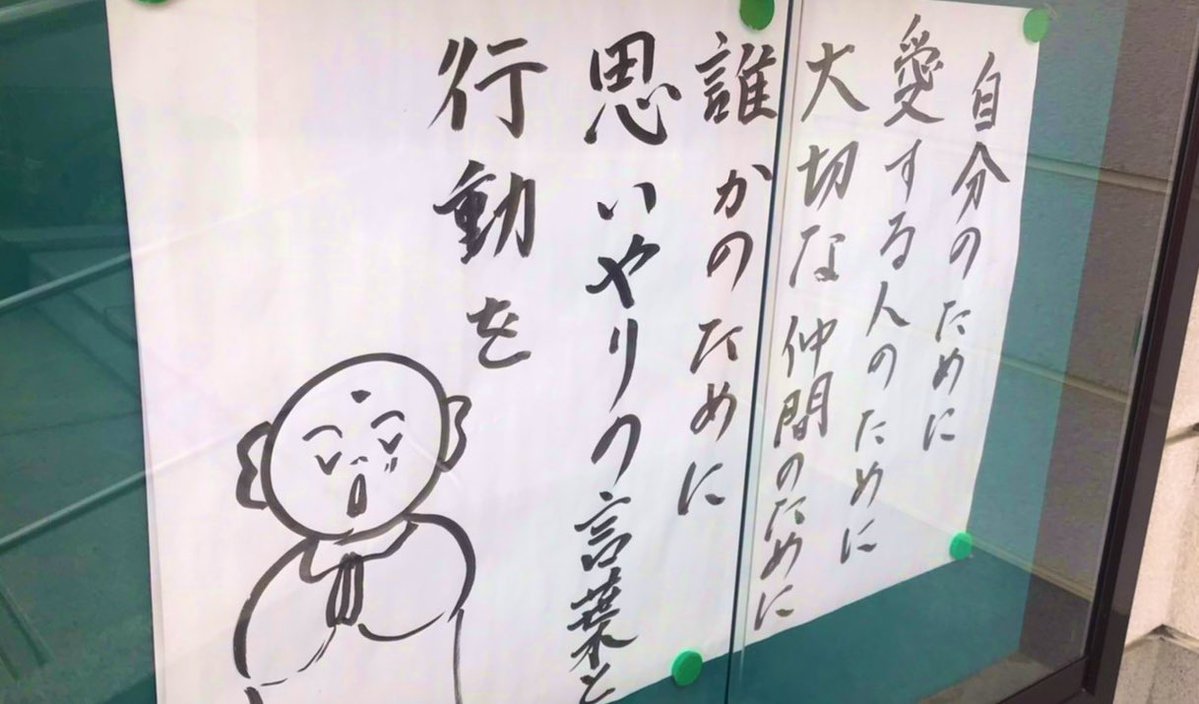 自分のために
愛する人のために
大切な仲間のために
誰かのために
思いやりの言葉と
行動を